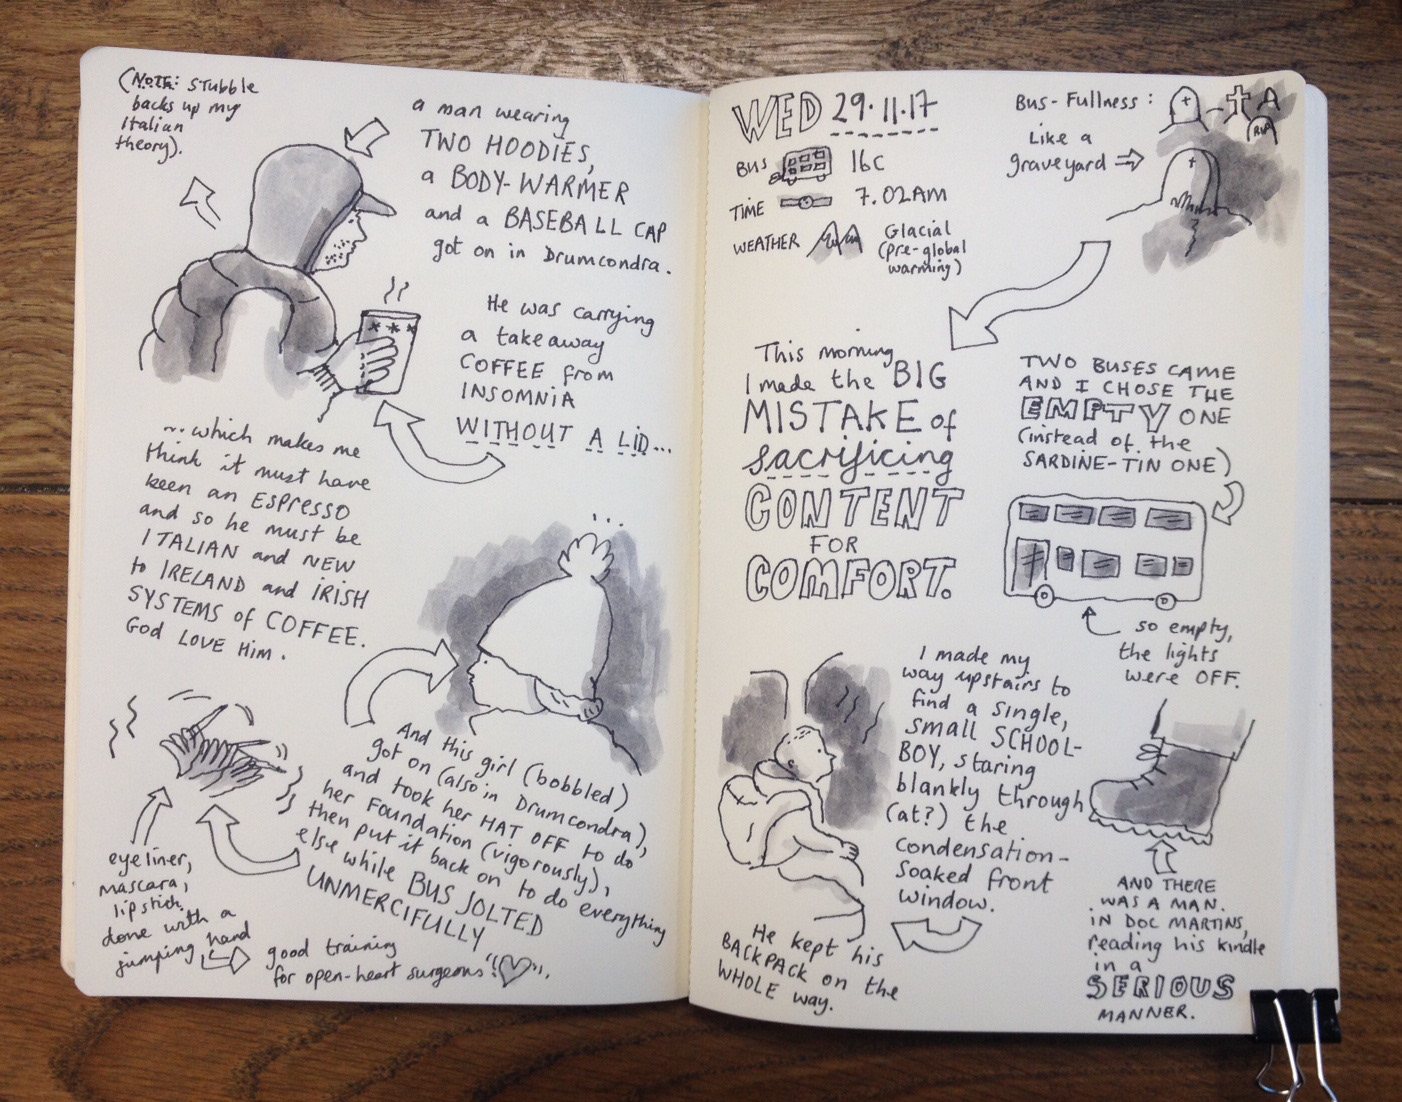 (NOTE: Stubble
backs up my
Italian
theory).
a man wearing
TWO HOODIES,
a BODY-WARMER
and a BASEBALL CAP
got on in Drumcondra.
He was carrying
a takeaway
COFFEE from
INSOMNIA
WITHOUT A LID...
...which makes me
think it must have
been an ESPRESSO
and so he must be
ITALIAN and NEW
to IRELAND and IRISH
SYSTEMS of COFFEE.
God LOVE HIM.
And this girl (bobbled)
got on (also in Drumcondra),
and took her HAT OFF to do
her Foundation (vigorously),
then put it back on to do everything
else while BUS JOLTED
UNMERCIFULLY
eyeliner,
mascara,
lipstick
done with a
jumping hand
good training
for open-heart surgeons
WED 29.11.17
BUS 16C
TIME 7.02AM
WEATHER Glacial
(pre-global
warming)
Bus-Fullness:
Like a
graveyard
RIP
This morning
I made the BIG
MISTAKE of
sacrificing
CONTENT
FOR
COMFORT.
TWO BUSES CAME
AND I CHOSE THE
EMPTY ONE
(instead of the
SARDINE-TIN ONE)
so empty,
the lights
were OFF.
I made my
way upstairs to
find a single,
small SCHOOL-
BOY, staring
blankly through
(at?) the
condensation-
soaked front
window.
He kept his
BACKPACK on the
WHOLE way.
AND THERE
WAS A MAN
IN DOC MARTINS,
reading his kindle
in a
SERIOUS
MANNER.